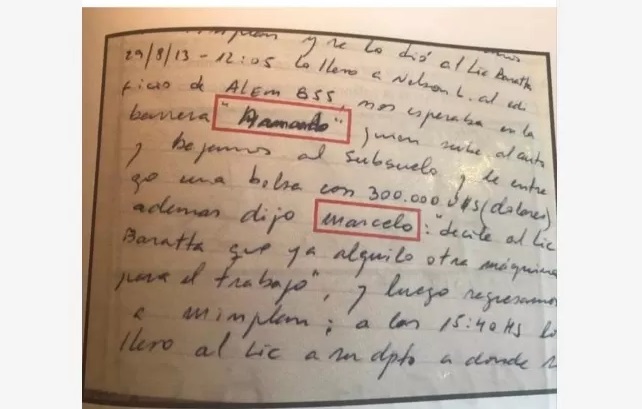 minplan y se lo dió al Lic Baratta
29/8/13 - 12:05 lo llevo a Nelson L. al edi
ficio de ALEM 855, nos esperaba en la
barrera "Armando" quien sube al auto
y bajamos al subsuelo y le entre
go una bolsa con 300.000 U$S (dolares)
ademas dijo marcelo: "decile al Lic
Baratta que ya alquilo otra máquina
para el trabajo", y luego regresamos
a minplan; a las 15:40 HS lo
llevo al Lic a su dpto a donde